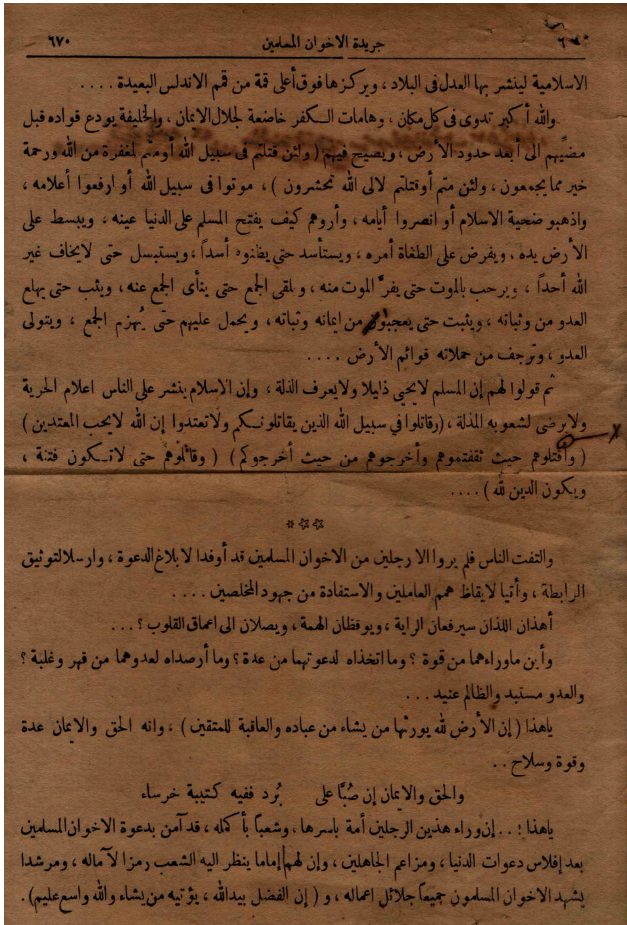 ٦٧٠ جريدة الاخوان المسلمين ٦
الاسلامية لينشر بها العدل فى البلاد ، ويركزها فوق أعلى قمة من قمم الاندلس البعيدة ....
والله أكبر تدوى فى كل مكان ، وهامات الكفر خاضعة لجلال الايمان ، والخليفة يودع قواده قبل
مضيهم الى أبعد حدود الأرض ، ويصيح فيهم ( ولئن قتلتم فى سبيل الله أو متم لمغفرة من الله ورحمة
خير مما يجمعون ، ولئن متم أو قتلتم لالى الله تحشرون ) ، موتوا فى سبيل الله أو ارفعوا أعلامه ،
واذهبو ضحية الاسلام أو انصروا أيامه ، وأروهم كيف يفتح المسلم على الدنيا عينه ، ويبسط على
الأرض يده ، ويفرض على الطغاة أمره ، ويستأسد حتى يظنوه أسداً ، ويستبسل حتى لايخاف غير
الله أحداً ، ويرحب بالموت حتى يفرَّ الموت منه ، ويلقى الجمع حتى ينأى الجمع عنه ، ويثب حتى يهلع
العدو من وثباته ، ويثبت حتى يعجبوا من ايمانه وثباته ، ويحمل عليهم حتى يُهزم الجمع ، ويتولى
العدو ، وترجف من حملاته قوائم الأرض ....
ثم قولوا لهم إن المسلم لايحيى ذليلا ولايعرف الذلة ، وإن الاسلام ينشر على الناس اعلام الحرية
ولايرضى لشعوبه المذلة ، (وقاتلوا في سبيل الله الذين يقاتلونكم ولاتعتدوا إن الله لايحب المعتدين )
( واقتلوهم حيث ثقفتموهم وأخرجوهم من حيث أخرجوكم ) ( وقاتلوهم حتى لاتكون فتنة ،
ويكون الدين لله ) ....
***
والتفت الناس فلم يروا الا رجلين من الاخوان المسلمين قد أوفدا لابلاغ الدعوة ، وارسلا لتوثيق
الرابطة ، وأتيا لايقاظ همم العاملين والاستفادة من جهود المخلصين ....
أهذان اللذان سيرفعان الراية ، ويوقظان الهمة ، ويصلان الى اعماق القلوب ؟ ...
وأين ماوراءهما من قوة ؟ وما اتخذاه لدعوتهما من عدة ؟ وما أرصداه لعدوهما من قهر وغلبة ؟
والعدو مستبد والظالم عنيد ...
ياهذا ( إن الأرض لله يورثها من يشاء من عباده والعاقبة للمتقين ) ، وانه الحق والايمان عدة
وقوة وسلاح ..
والحق والايمان إن صُبَّا على بُرد ففيه كتيبة خرساء
ياهذا ! .. إن وراء هذين الرجلين أمة باسرها ، وشعباً بأكمله ، قد آمن بدعوة الاخوان المسلمين
بعد إفلاس دعوات الدنيا ، ومزاعم الجاهلين ، وإن لهم إماما ينظر اليه الشعب رمزا لآماله ، ومرشدا
يشهد الاخوان المسلمون جميعاً جلائل اعماله ، و ( إن الفضل بيد الله ، يؤتيه من يشاء والله واسع عليم ).